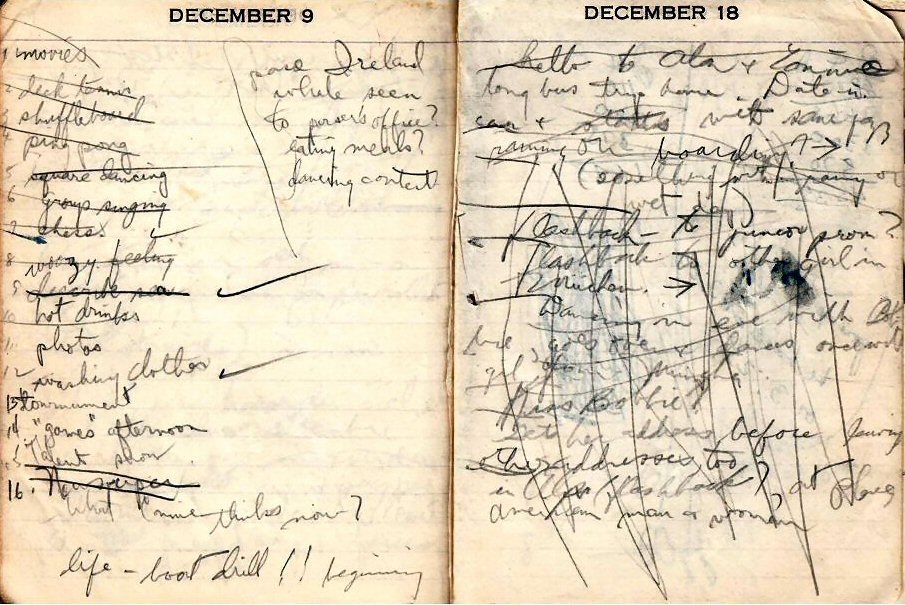 DECEMBER 9
1 movies
2 deck tennis
3 shuffleboard
4 ping pong
5 square dancing
6 group singing
7 chess
8 woozy feeling
9 describe sea
10 hot drinks
11 photos
12 washing clothes
13 tournament
14 "games" afternoon
15 Talent show
16. Newspaper
What Connie thinks now?
life-boat drill!! beginning
pass Ireland
while seen
to purser's office?
eating meals?
dancing contest
DECEMBER 18
to Alan + Connie
long bus trip home. Date in
car + starts with same
raining on boarding →
(something with rainy or
wet day)
flashback - to junior prom?
Flashback to other girl in
Munchen. →
Dancing in eve with
he goes over + dances once with
girl from
Kiss Bobbie?
Get her address before leaving
Other addresses, too
in Class flashback? at
American man + woman